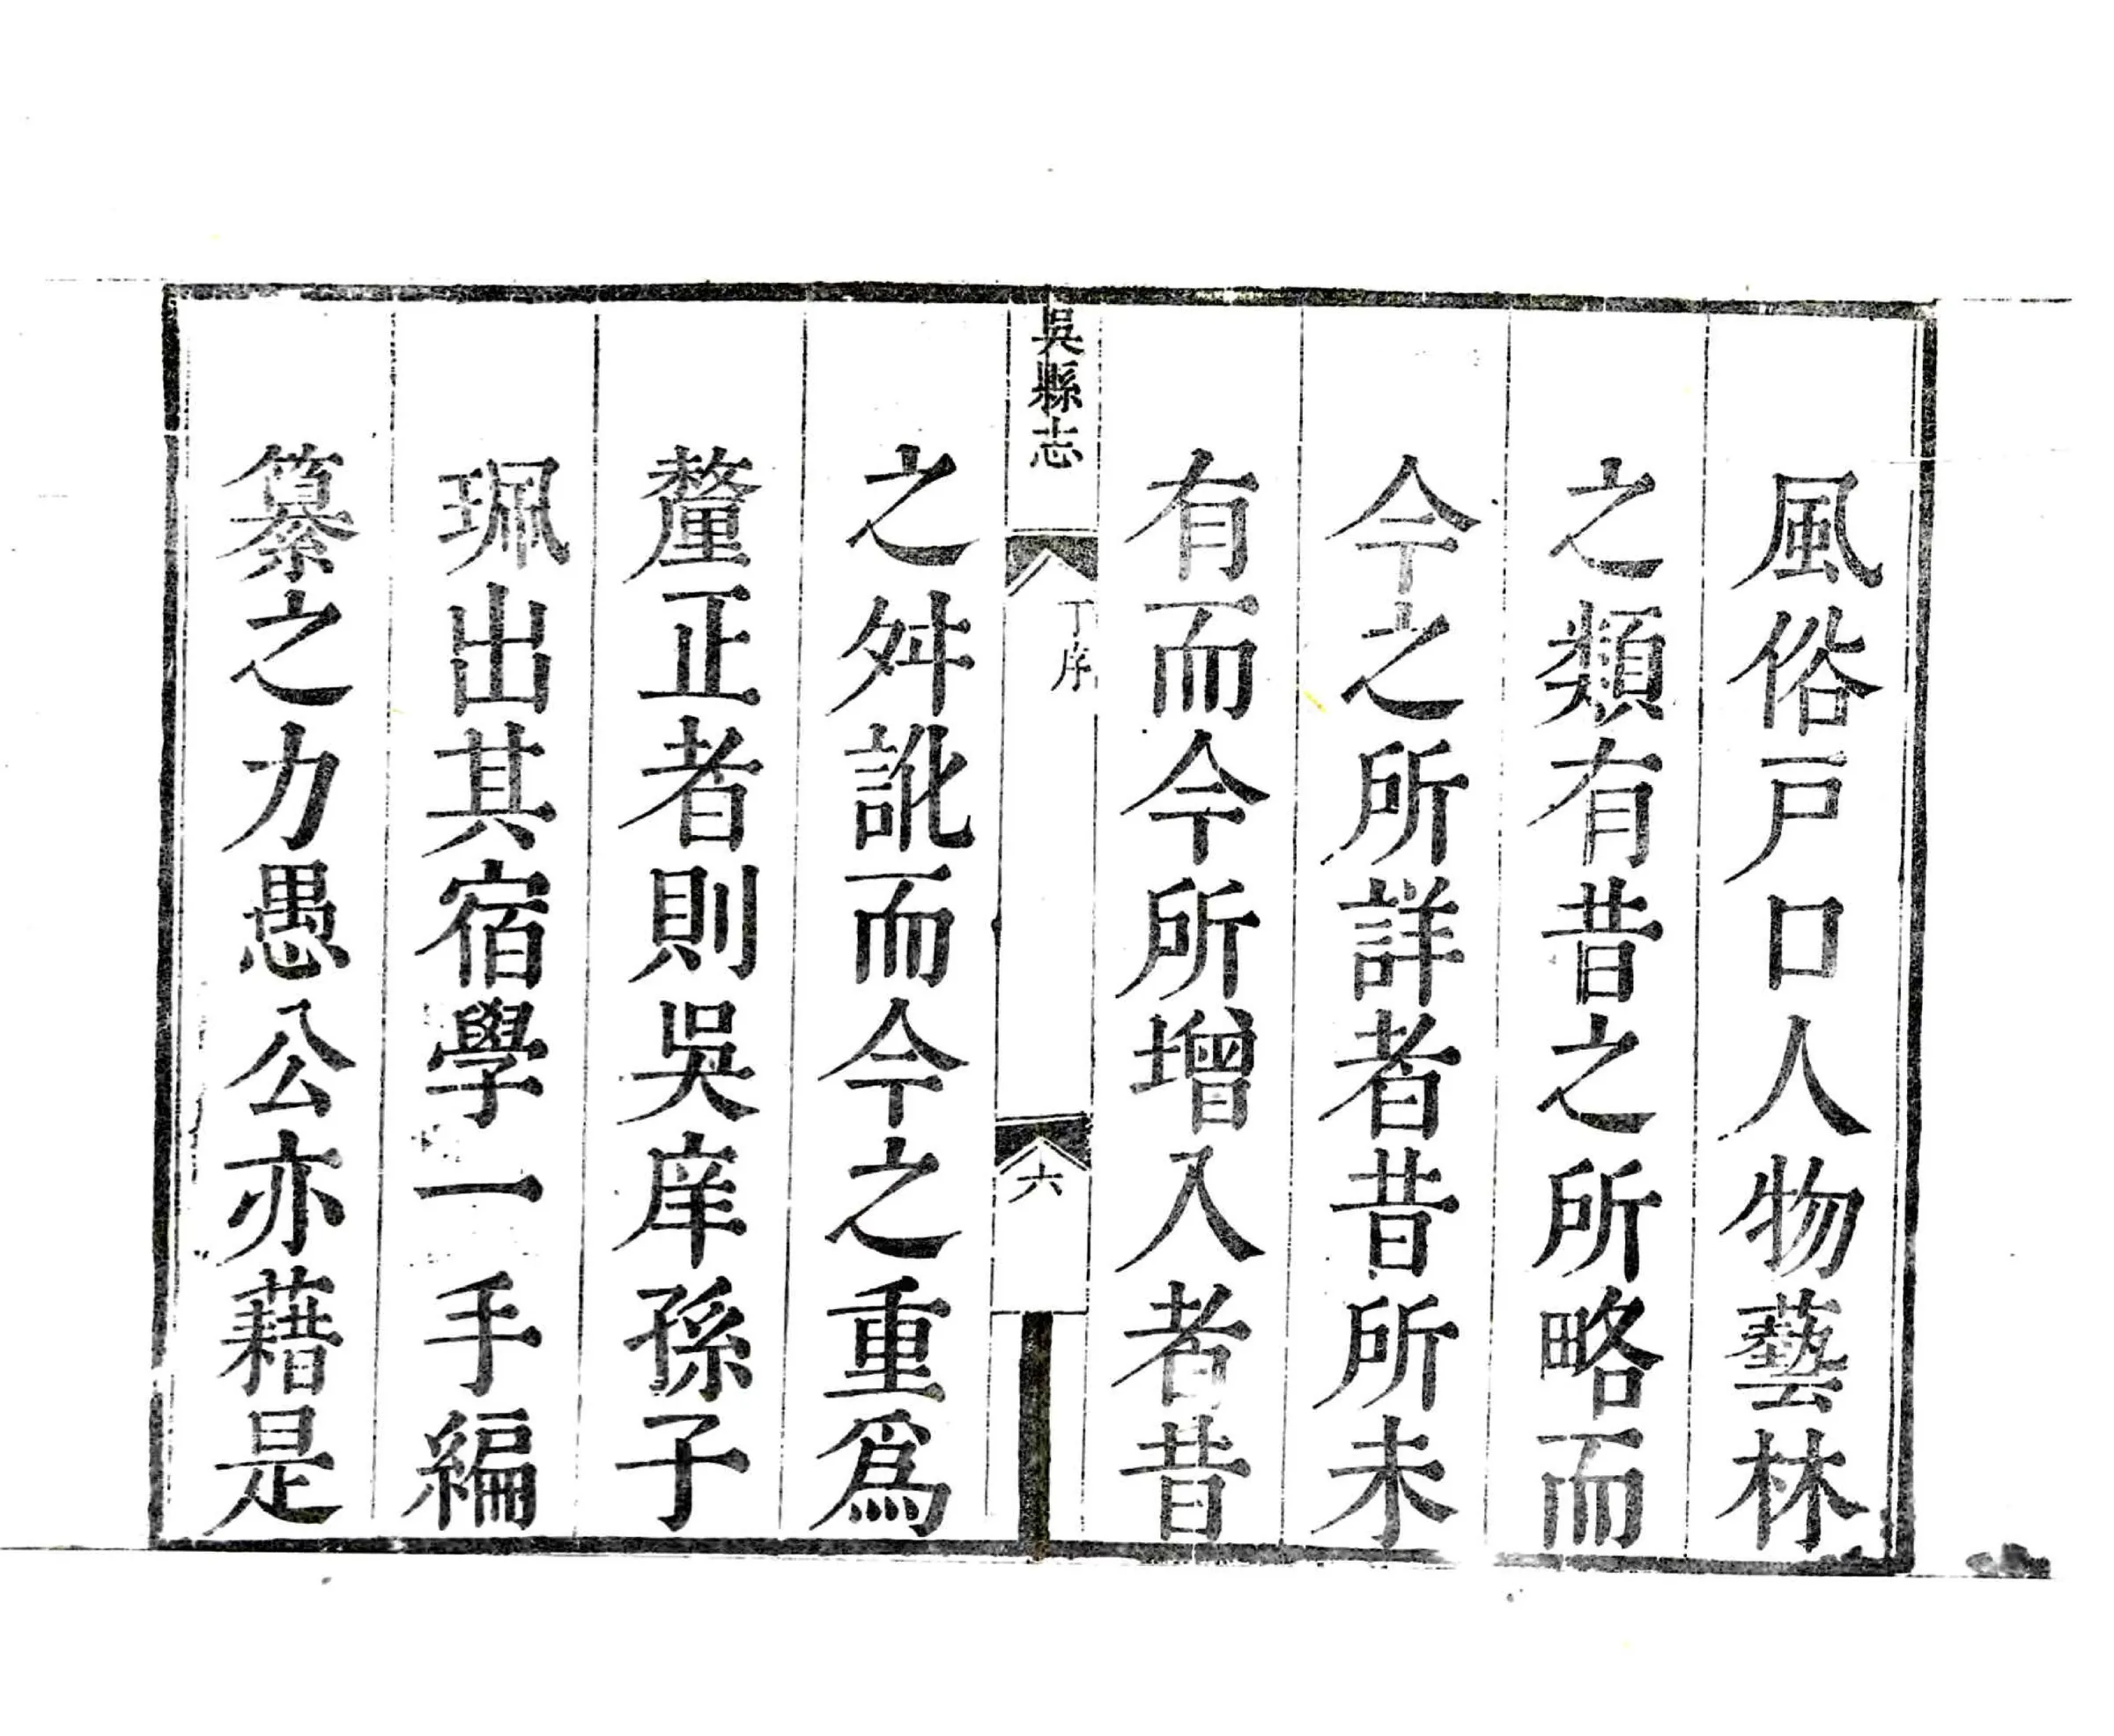 風俗戸口人物藝林
之類有昔之所略而
今之所詳者昔所未
有而今所增入者昔
吳縣志
丁序
六
之舛訛而今之重爲
釐正者則吳庠孫子
珮出其宿學一手編
纂之力愚公亦藉是